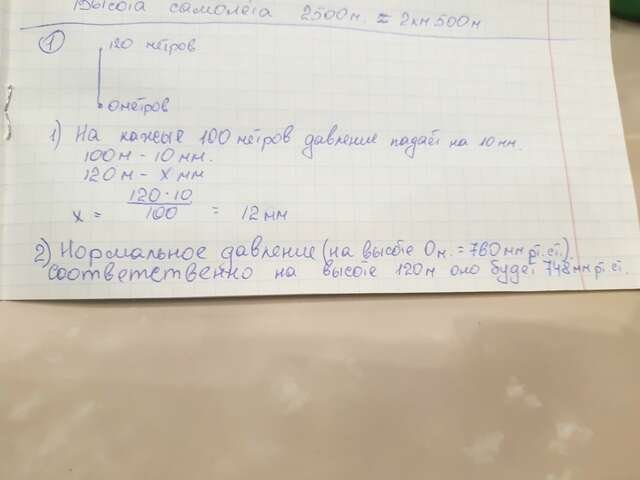 Высота самолета 2500м. ≈ 2км 500м
① 120 метров
0 метров
1) На кажые 100 метров давление падает на 10 мм.
100м - 10 мм.
120м - х мм
х = 120·10 / 100 = 12 мм
2) Нормальное давление (на высоте 0м. = 760 мм рт. ст.)
соответственно на высоте 120м оно будет 748 мм рт. ст.